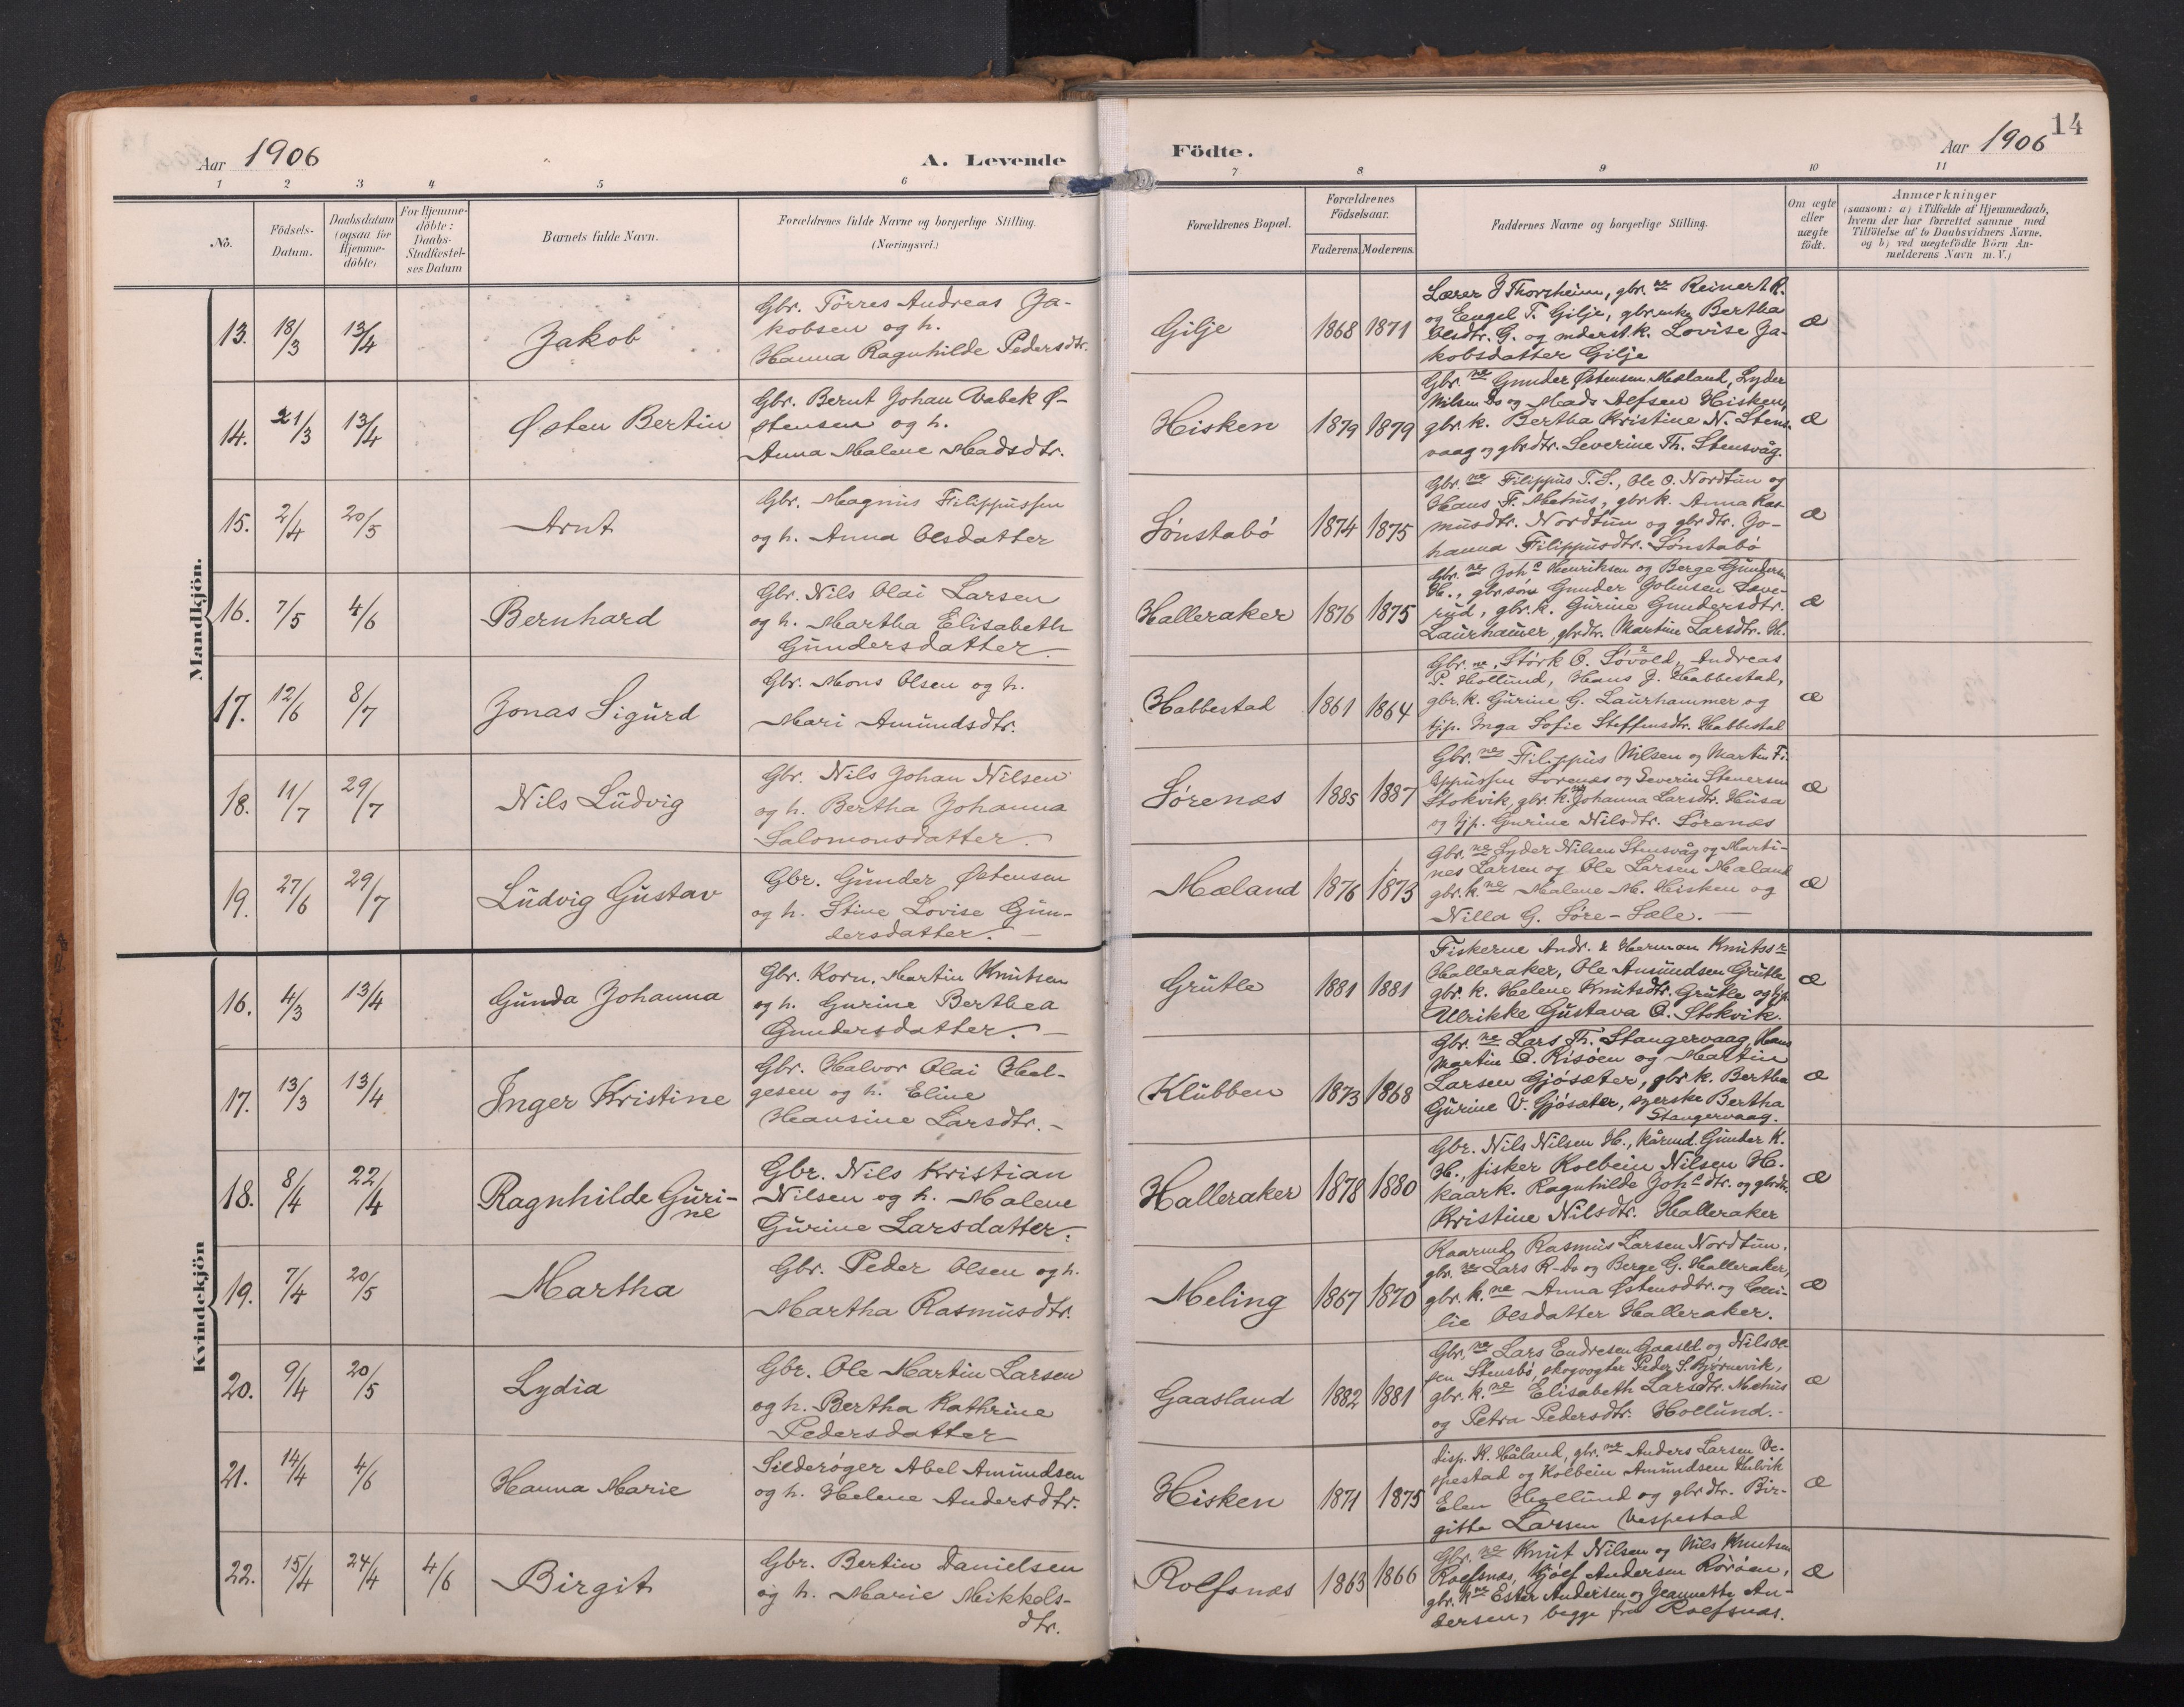 Aar 1906
A. Levende
Födte.
Aar 1906
14
1 2 3 4 5 6 7 8 9 10 11
No.
Födsels-
Datum.
Daabsdatum
(ogsaa for
Hjemme-
döbte)
For Hjemme-
döbte:
Daabs-
Stadfæstel-
ses Datum
Barnets fulde Navn.
Forældrenes fulde Navne og borgerlige Stilling.
(Næringsvei.)
Forældrenes Bopæl.
Forældrenes
Födselsaar.
Faderens. Moderens.
Faddernes Navne og borgerlige Stilling.
Om ægte
eller
uægte
födt.
Anmærkninger
(saasom: a) i Tilfælde af Hjemmedaab,
hvem der har forrettet samme med
Tilföielse af to Daabsvidners Navne,
og b) ved uægtefödte Börn An-
melderens Navn m. V.)
Mandkjön.
13. 18/3 13/4
Jakob
Gbr. Tørres Andreas Ja-
kobsen og h.
Hanna Ragnhilde Pedersdtr.
Gilje 1868 1871
Lærer J Thorsheim, gbr. ne Reinert R.
og Engel T. Gilje, gbr.enke Bertha
Olsdtr. G. og k. Lovise Ja-
kobsdatter Gilje
æ
14. 21/3 13/4
Østen Bertin
Gbr. Bernt Johan Vabek Ø-
stensen og h.
Anna Malene Madsdtr.
Hisken 1879 1879
Gbr. ne Gunder Østensen Mæland, Lyder
Nilsen Do og Mads Alfsen Hisken,
gbr k. Bertha Kristine N. Stens-
vaag og gbrdtr. Severine Th. Stensvåg.
æ
15. 2/4 20/5
Arnt
Gbr. Magnus Filippussen
og h. Anna Olsdatter
Sønstabö 1874 1875
Gbr. ne Filippus T. S., Ole O. Nordtun og
Hans F. Mehus, gbr k. Anna Ras-
musdtr. Nordtun og gbr dtr. Jo-
hanna Filippusdtr. Sønstabö
æ
16. 7/5 4/6
Bernhard
Gbr. Nils Olai Larsen
og h. Martha Elisabeth
Gundersdatter.
Halleraker 1876 1875
Gbr. ne Joh.s Henriksen og Berge Gundersen
H., gbr søn Gunder Johnsen Sæve-
rud, gbr. k. Gurine Gundersdtr.
Laurhamer, gbrdtr. Martine Larsdtr. H.
æ
17. 12/6 8/7
Jonas Sigurd
Gbr. Mons Olsen og h.
Mari Amundsdtr.
Habbestad 1861 1864
Gbr. ne, Størk O. Løvold, Andreas
P. Hollund, Hans J. Habbestad,
gbr. k. Gurine G. Laurhammer og
tjp. Inga Sofie Steffensdtr. Habbestad
æ
18. 11/7 29/7
Nils Ludvig
Gbr. Nils Johan Nilsen
og h. Bertha Johanna
Salomonsdatter.
Sørenæs 1885 1887
Gbr. ne Filippus Nilsen og Martin Fi-
lippussen Sørenæs og Severin Stenersen
Stokvik, gbr. k. Johanna Larsdtr. Husa
og tjp. Gurine Nilsdtr. Sørenæs
æ
19. 27/6 29/7
Ludvig Gustav
Gbr. Gunder Østensen
og h. Stine Lovise Gun-
dersdatter.
Mæland 1876 1873
Gbr. ne Lyder Nilsen Stensvåg og Marti-
nes Larsen og Ole Larsen Mæland
gbr. k. ne Malene M. Hisken og
Nilla G. Søre-Sæle.
æ
Kvindekjön
16. 4/3 13/4
Gunda Johanna
Gbr. Korn. Martin Knutsen
og h. Gurine Berthea
Gundersdatter.
Grutle 1881 1881
Fiskerne Andr. & Herman Knutss
Halleraker, Ole Amundsen Grutle
gbr. k. Helene Knutsdtr. Grutle og tjp.
Ulrikke Gustava O. Stokvik.
æ
17. 13/3 13/4
Inger Kristine
Gbr. Halvor Olai Hel-
gesen og h. Eline
Hansine Larsdtr.
Klubben 1873 1868
Gbr. ne Lars Th. Stangervaag, Hans
Martin O. Risöen og Martin
Larsen Gjösæter, gbr k. Bertha
Gurine V. Gjösæter, syerske Bertha
Stangervaag.
æ
18. 8/4 22/4
Ragnhilde Guri-
ne
Gbr. Nils Kristian
Nilsen og h. Malene
Gurine Larsdatter.
Halleraker 1878 1880
Gbr. Nils Nilsen H., kårmd. Gunder K.
H., fisker Kolbein Nilsen H.
kaark. Ragnhilde Joh.s dtr. og gbrdtr.
Kristine Nilsdtr. Halleraker
æ
19. 7/4 20/5
Martha
Gbr. Peder Olsen og h.
Martha Rasmusdtr.
Meling 1867 1870
Kaarmd. Rasmus Larsen Nordtun,
gbr. ne Lars R-do og Berge G. Halleraker,
gbr. k. ne Anna Østensdtr. og Ceci-
lie Olsdatter Halleraker.
æ
20. 9/4 20/5
Lydia
Gbr. Ole Martin Larsen
og h. Bertha Kathrine
Pedersdatter
Gaasland 1882 1881
Gbr. ne Lars Endresen Gaasld og Nils Ol-
sen Stensbö, skogvogter Peder S. Bjørnevik,
gbr. k. ne Elisabeth Larsdtr. Mehus
og Petra Pedersdtr. Hollund.
æ
21. 14/4 4/6
Hanna Marie
Silderøger Abel Amundsen
og h. Helene Andersdtr.
Hisken 1871 1875
disp. K. Håland, gbr. ne Anders Larsen Ve-
spestad og Kolbein Amundsen Hulvik
Elen Hollund og gbr dtr. Bir-
gitte Larsen Vespestad
æ
22. 15/4 24/4 4/6
Birgit
Gbr. Bertin Danielsen
og h. Marie Mikkels-
dtr.
Rolfsnæs 1863 1866
Gbr. ne Knut Nilsen og Nils Knutsen
Rolfsnæs, Andersen Rörøen,
gbr. k. ne Ester Andersen og Jeannette An-
dersen, begge fra Rolfsnæs.
æ